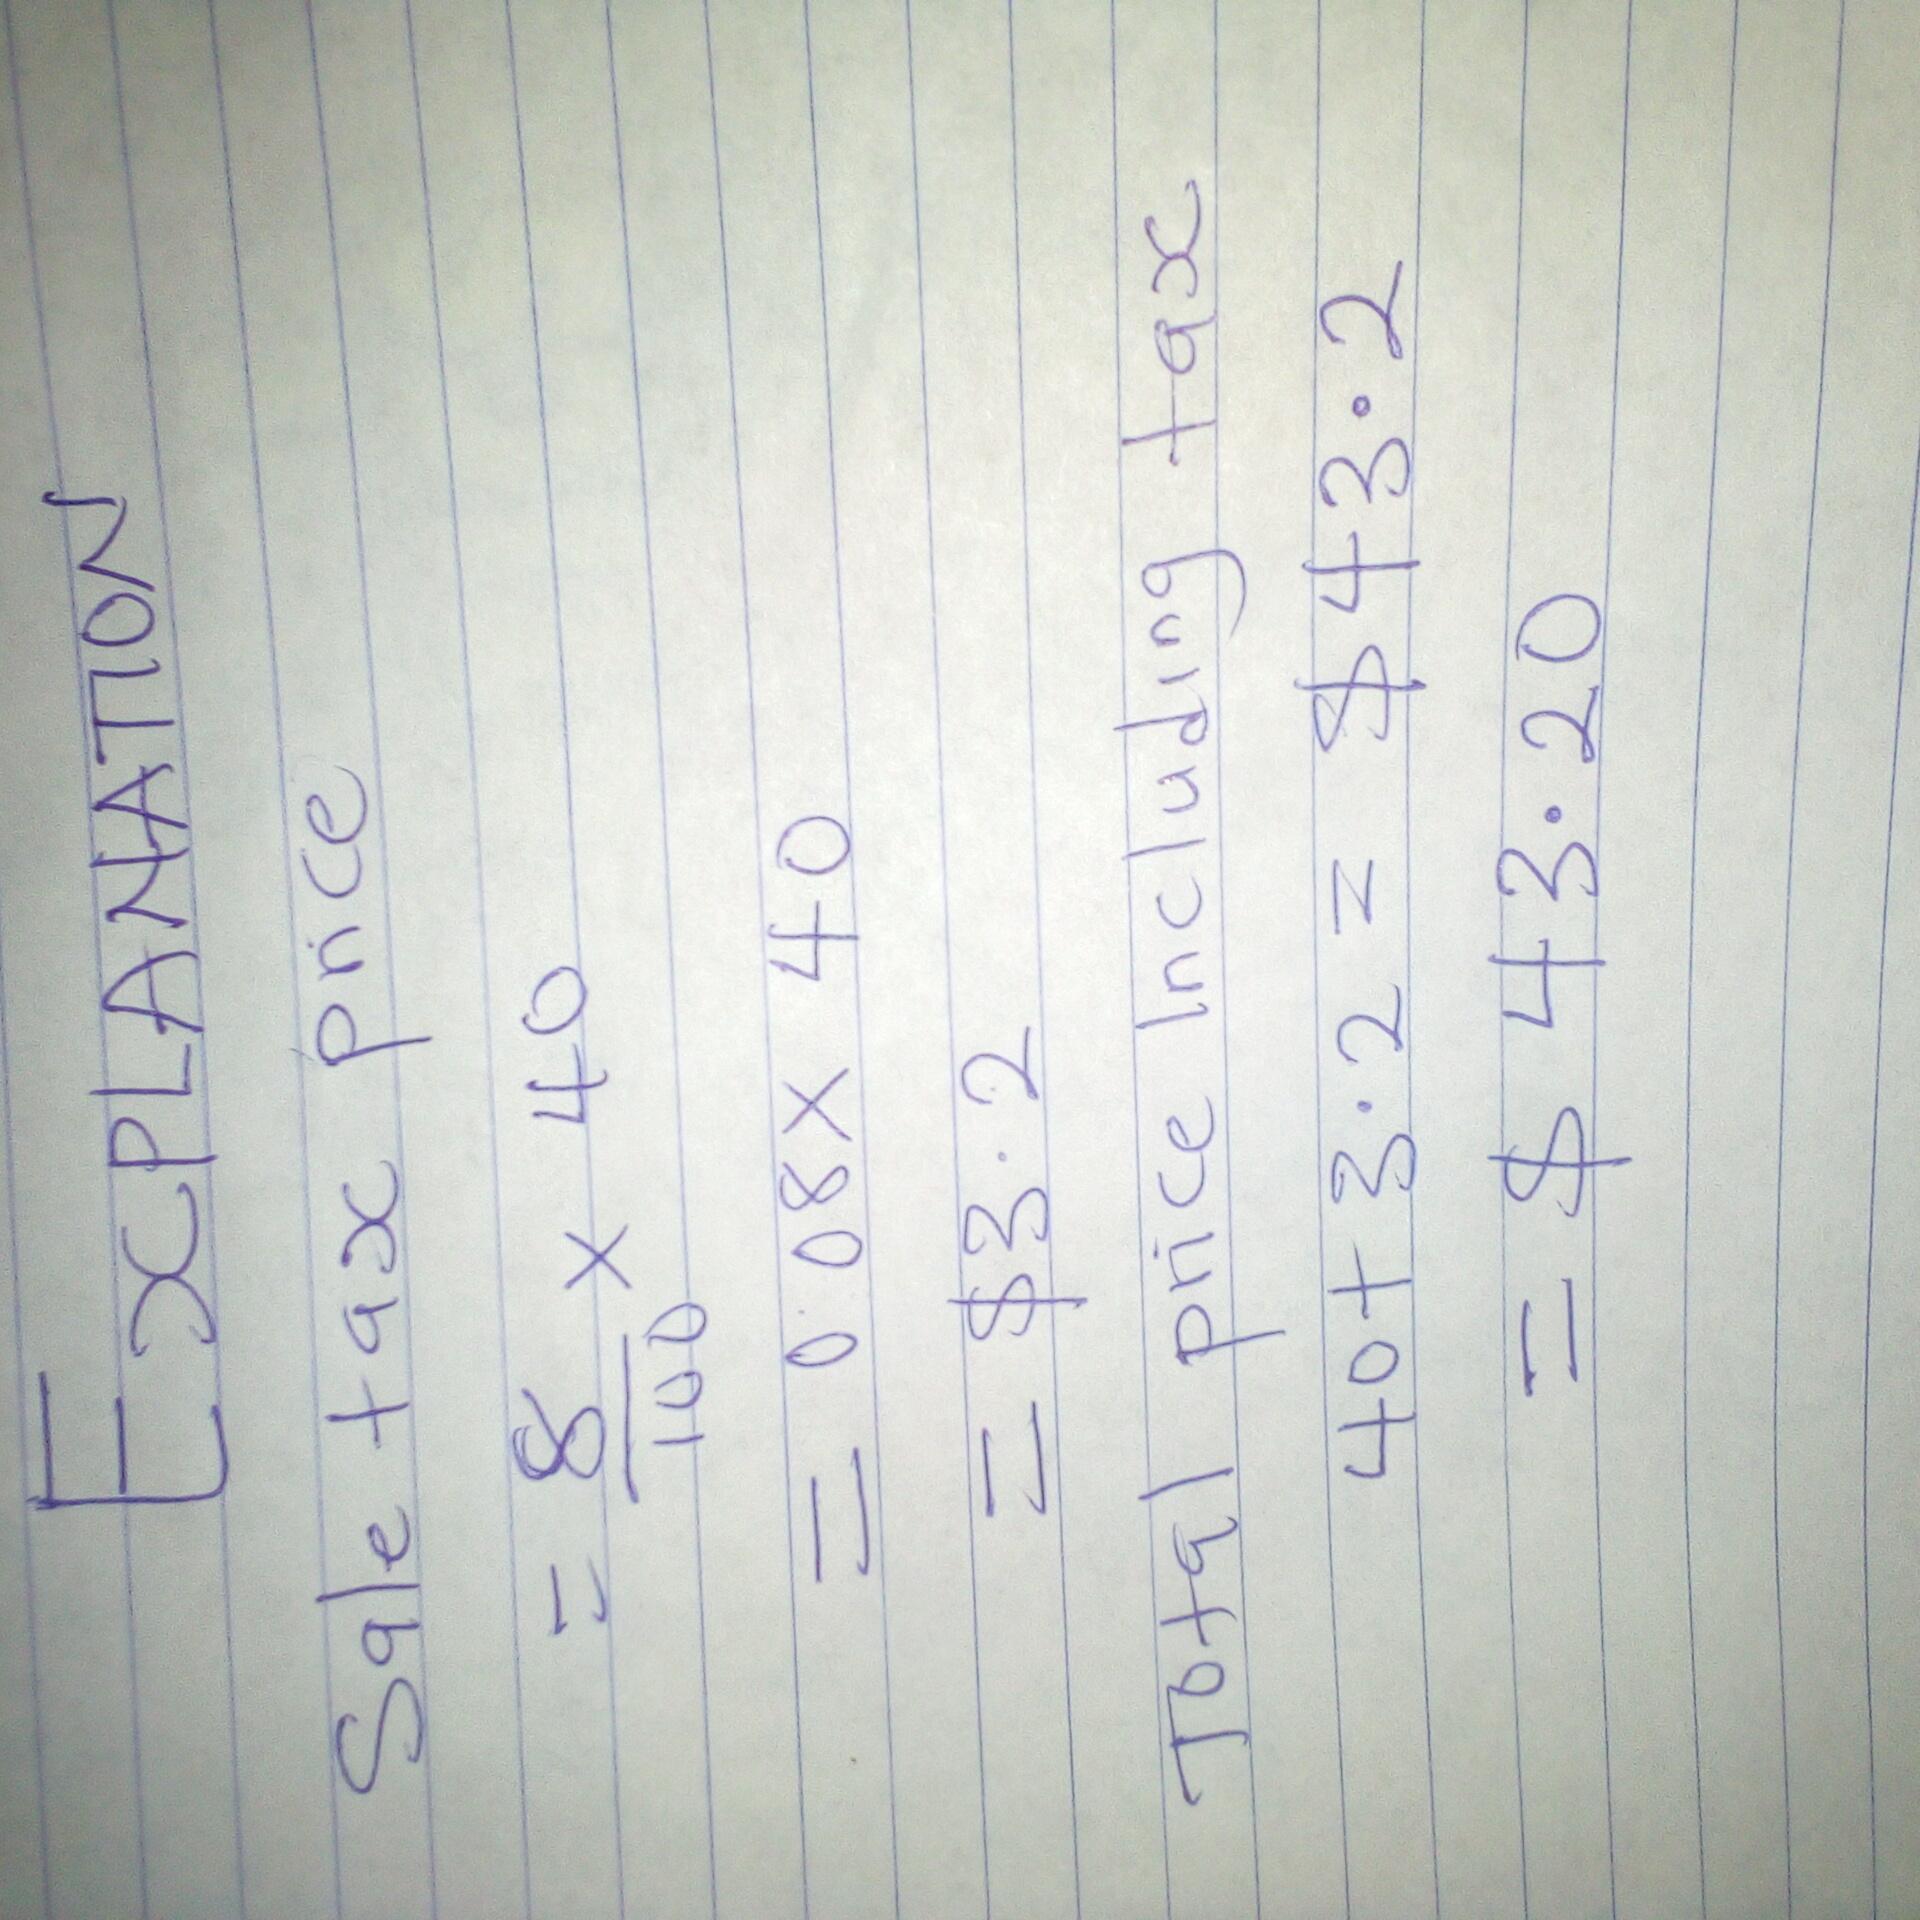 EXPLANATION
Sale tax price
= 8/100 x 40
= 0.08 x 40
= $3.2
Total price Including tax
40 + 3.2 = $43.2
= $43.20